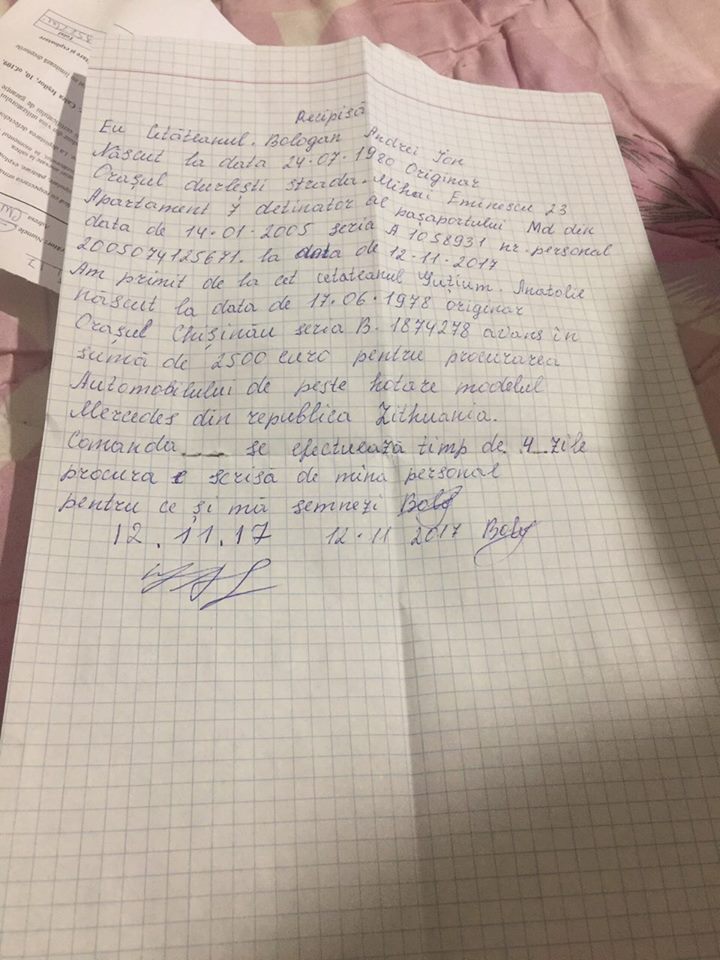 Recipisă
Eu Cetățeanul. Bologan Andrei Ion
Născut la data 24.07.1980 Originar
Orașul durlești strada. Mihai Eminescu 23
Apartament 7 detinator al pașaportului Md din
data de 14.01.2005 seria A 1058931 nr. personal
2005074125671. la data de 12.11.2017
Am primit de la cet cetateanul Anatolie
născut la data de 17.06.1978 originar
Orașul Chișinău seria B. 1874278 avans în
sumă de 2500 euro pentru procurarea
Automobilului de peste hotare modelul
Mercedes din republica Lithuania.
Comanda __ se efectuează timp de 4 zile
procura e scrisă de mina personal
pentru ce și mă semnezi
12.11.17 12.11 2017